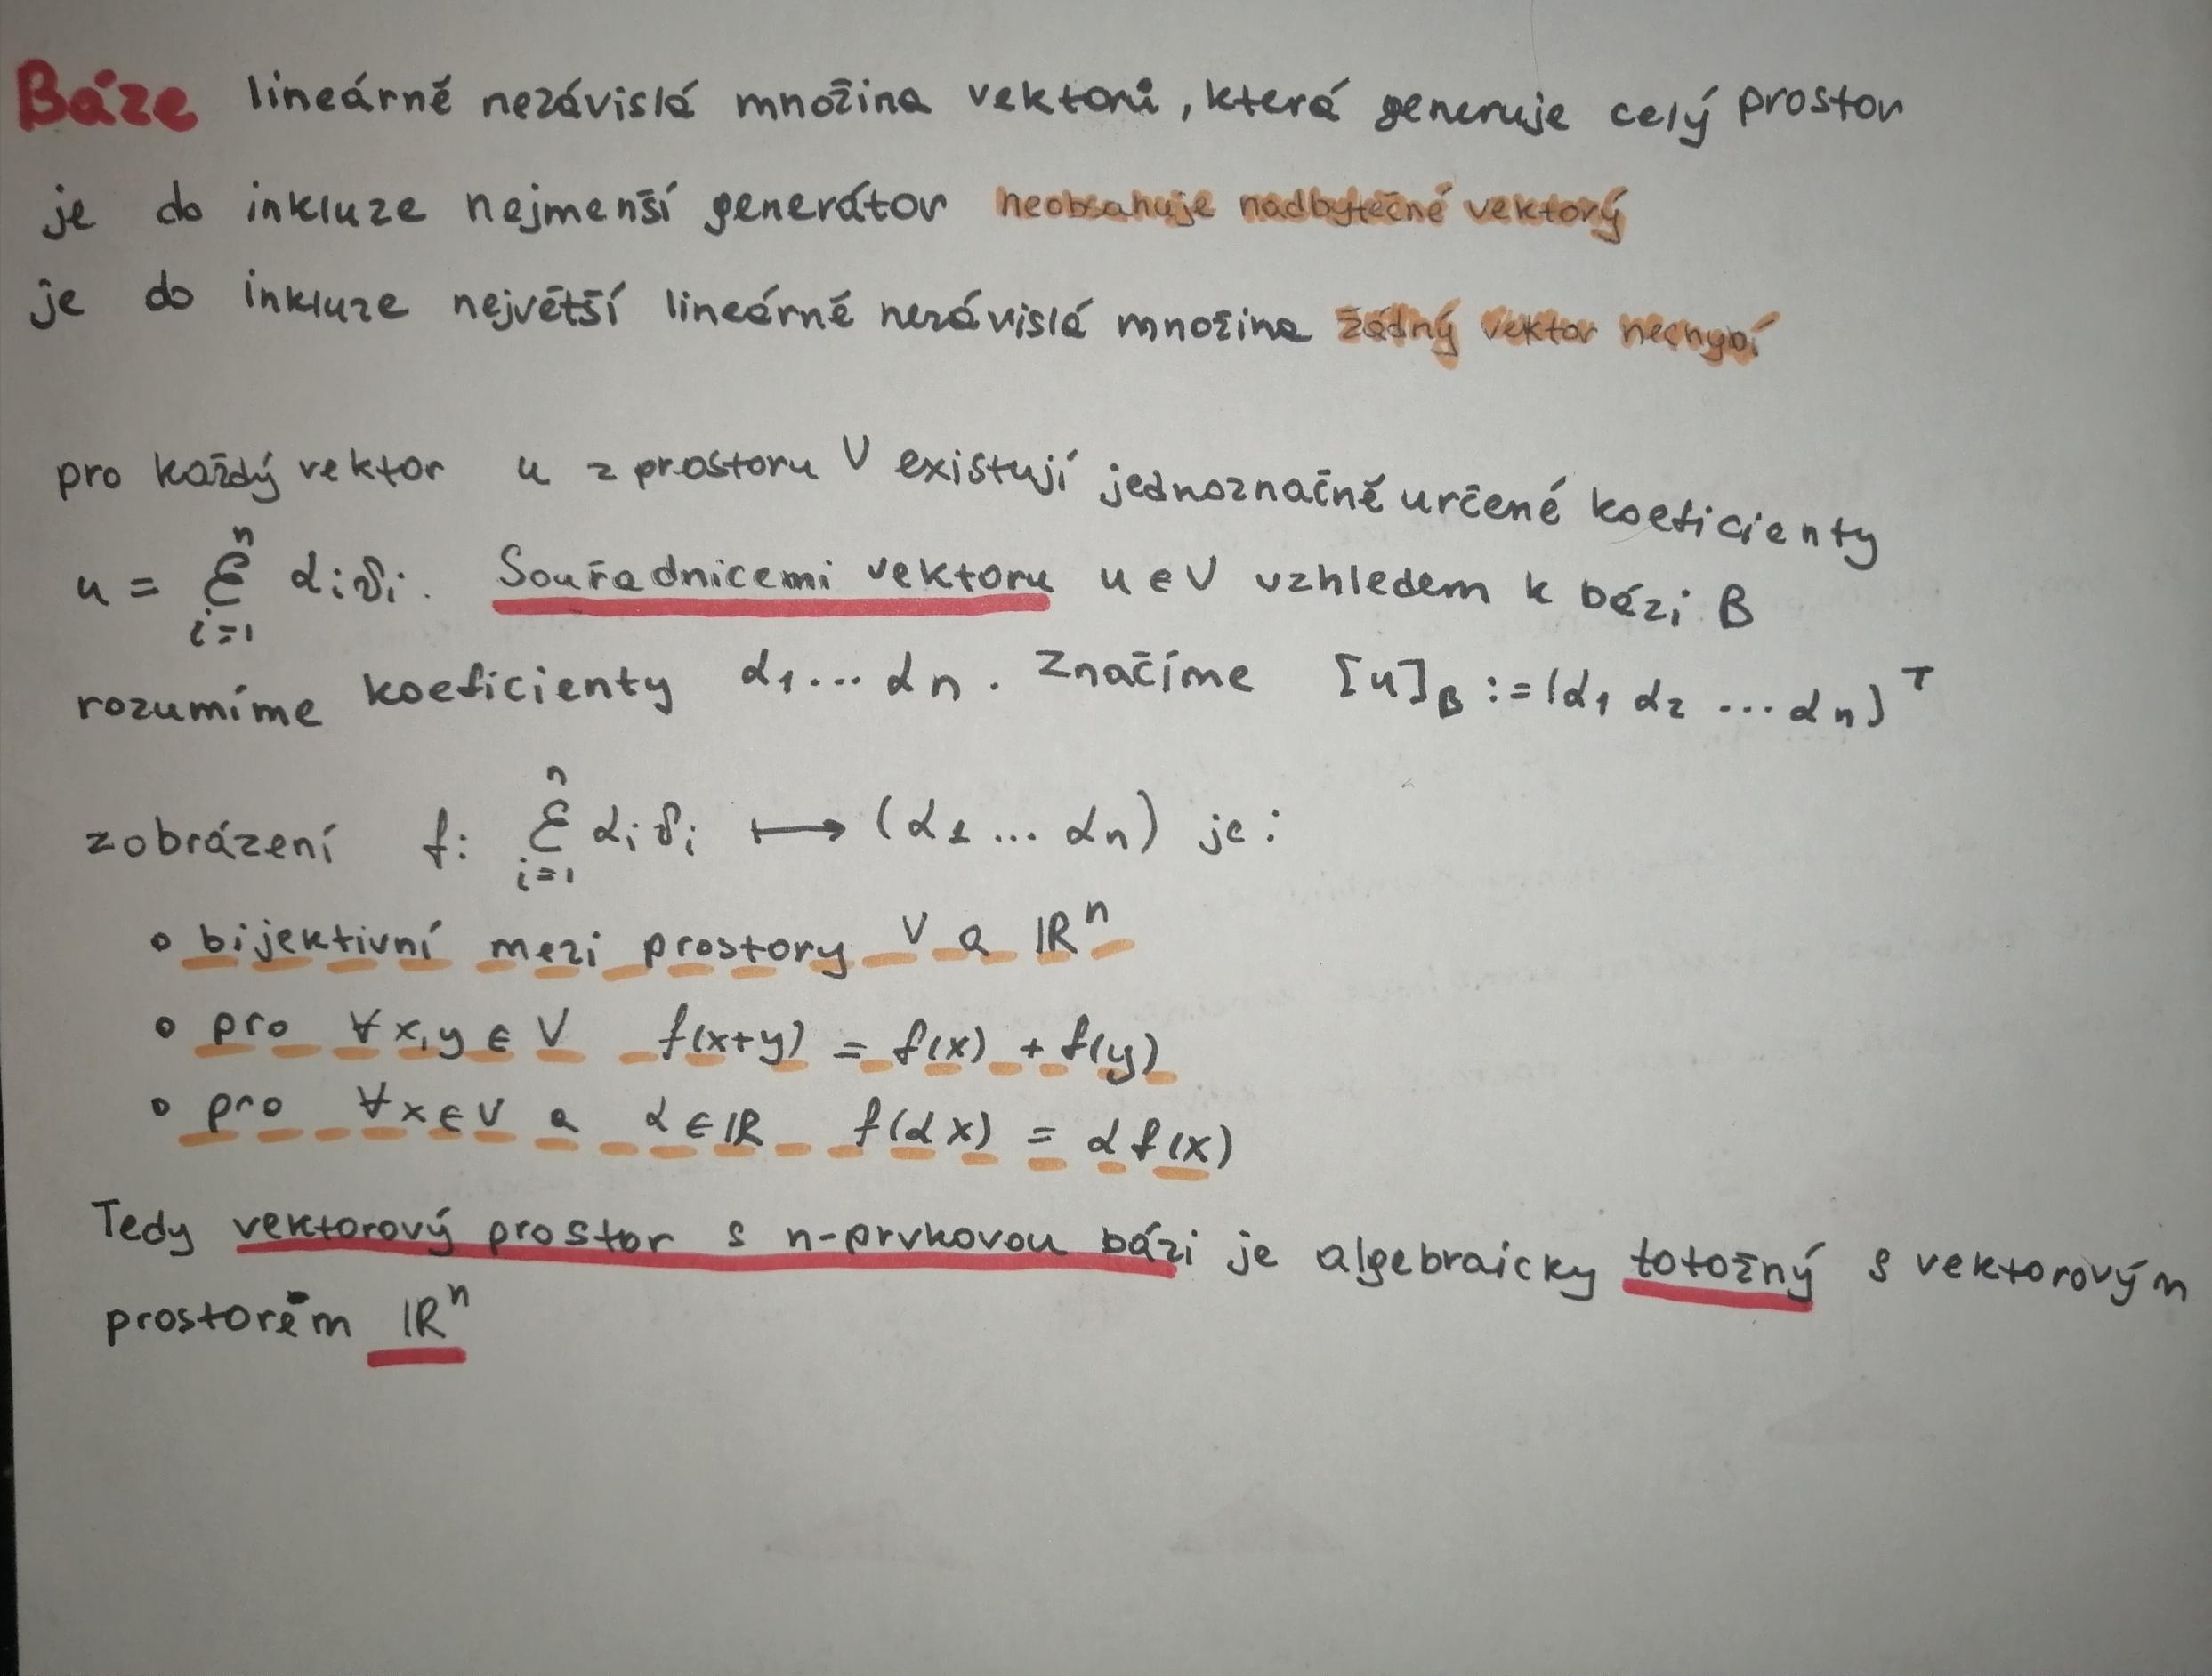 Báze lineárně nezávislá množina vektorů, která generuje celý prostor
je do inkluze nejmenší generátor neobsahuje nadbytečné vektorý
je do inkluze největší lineárně nezávislá množina žádný vektor nechybí
pro každý vektor u z prostoru V existují jednoznačně určené koeficienty
u = n∑i=1 αivi. Souřadnicemi vektoru u∈V vzhledem k bázi B
rozumíme koeficienty α1... αn. Značíme [u]B := (α1 α2 ... αn)T
zobrázení f: n∑i=1 αivi ⟼ (α1 ... αn) je:
∘ bijektivní mezi prostory V a ℝn
∘ pro ∀x,y ∈ V f(x+y) = f(x) + f(y)
∘ pro ∀x∈V a α∈ℝ f(αx) = αf(x)
Tedy vektorový prostor s n-prvkovou bázi je algebraicky totožný s vektorovým
prostorem ℝn